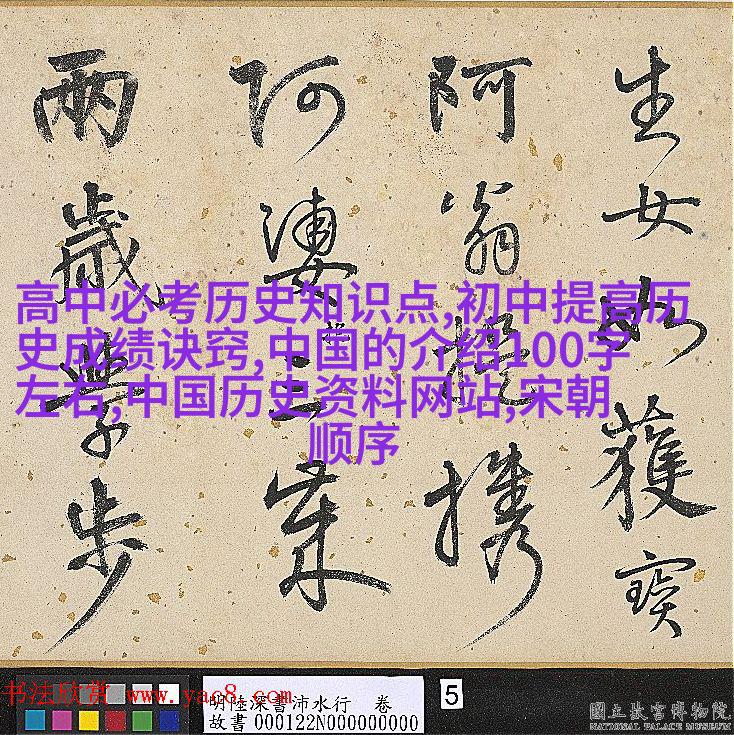 生女如獲寶
阿翁携
阿婆三
兩歲學步
高中必考历史知识点,初中提高历
史成绩诀窍,中国的介绍100字
左右,中国历史资料网站,宋朝
顺序
书法欣赏 www.yac8.com
明陸深書沛水行 卷
故書 000122N000000000
5
國立故宮博物院
NATIONAL PALACE MUSEUM